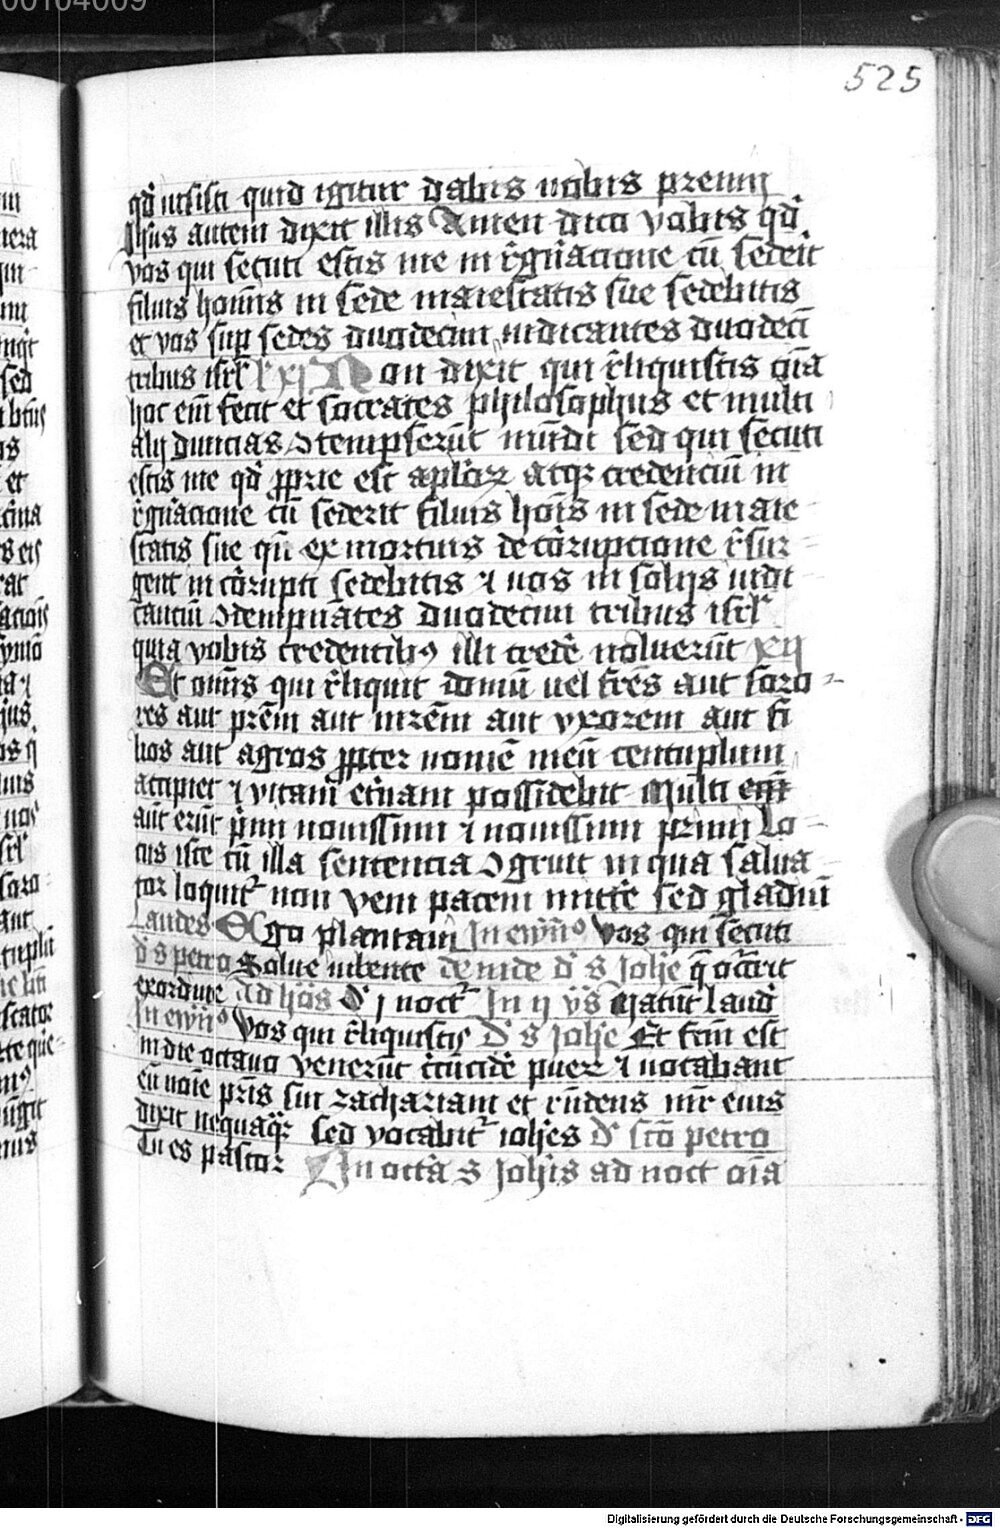 525
qd̄ iussisti quid igitur dabis nobis premij
Ihsus autem dixit illis Amen dico vobis qd̄
vos qui secuti estis me in r̄gn̄acione cū sederit
filius hom̄is in sede maiestatis sue sedebitis
et vos sup̄ sedes duodecim iudicantes duodecī
tribus isrl̄ l xj Non dixit qui r̄liquistis oīa
hoc em̄ fecit et socrates philosophus et multi
alij diuicias ꝯtempserūt mūdi sed qui secuti
estis me qd̄ ꝓprie est aplōꝝ atqꝫ credenciū in
r̄gn̄acione cū sederit filius hōis in sede maie-
statis sue qn̄ ex mortuis de cōrupcione r̄sur-
gent in cōrupti sedebitis ⁊ vos in solijs iudi
cantiū ꝯdempnātes duodecim tribus isrl̄
quia vobis credentibꝰ illi credē noluerūt xij
Et om̄is qui r̄liquit domū uel fr̄es aut soro-
res aut pr̄em aut mr̄em aut vxorem aut fi
lios aut agros ꝓpter nomē meū centuplum
accipiet ⁊ vitam et̄nam possidebit Multi
aūt erūt p̄mi nouissimi ⁊ nouissimi primi Lo-
cus iste cū illa sentencia ꝯgruit in qua salua-
tor loquit̄ non veni pacem mittē sed gladiū
Laudes Ego plantam In ewn̄o Vos qui secuti
d' s petro Solue iubente deinde d' s Johe q̄ occ̄rit
exordine ad ho͞s d' j noct' In ij vs̄ Natūt laud'
In ewn̄o Vos qui r̄liquistis D' s Johe Et fcm̄ est
in die octauo venerūt circūcidē pueꝝ ⁊ vocabant
eū noīe pr̄is sui zachariam et rn̄dens mr̄ eius
dixit nequaqꝫ sed vocabit̄ ioh̄es D' scō petro
Tu es pastor In octa' s Joh̄is ad noct oīa
Digitalisierung gefördert durch die Deutsche Forschungsgemeinschaft - DFG